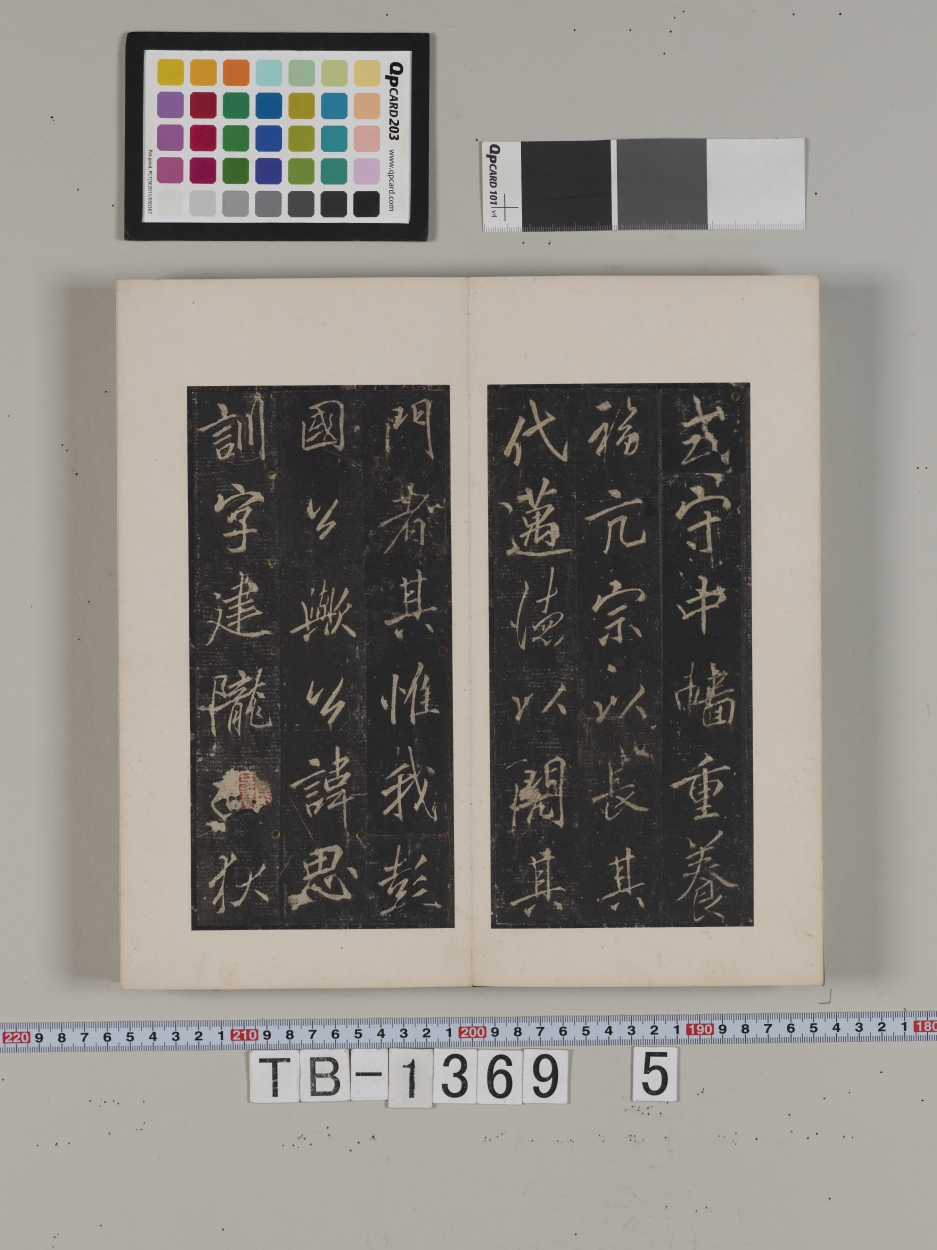 守中牆重養
福亢宗以長其
代邁德以闢其
門者其惟我彭
國公歟公諱思
訓字建隴狄
QpCARD 203 www.qpcard.com
QpCARD 101 v4
220 9 8 7 6 5 4 3 2 1 210 9 8 7 6 5 4 3 2 1 200 9 8 7 6 5 4 3 2 1 190 9 8 7 6 5 4 3 2 1 180
TB-1369 5